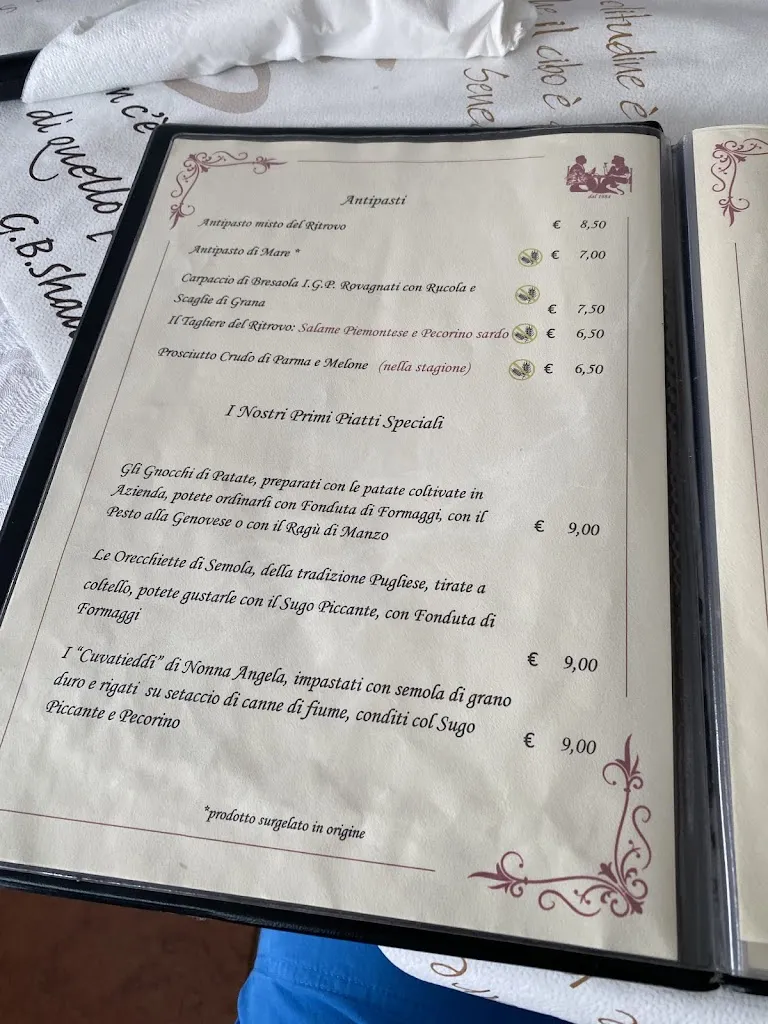 ditudine è
he il cibo è
Sene
n c'è
di quello
G.B.Shaw
dal 1984
Antipasti
Antipasto misto del Ritrovo € 8,50
Antipasto di Mare * € 7,00
Carpaccio di Bresaola I.G.P. Rovagnati con Rucola e
Scaglie di Grana € 7,50
Il Tagliere del Ritrovo: Salame Piemontese e Pecorino sardo € 6,50
Prosciutto Crudo di Parma e Melone (nella stagione) € 6,50
I Nostri Primi Piatti Speciali
Gli Gnocchi di Patate, preparati con le patate coltivate in
Azienda, potete ordinarli con Fonduta di Formaggi, con il
Pesto alla Genovese o con il Ragù di Manzo € 9,00
Le Orecchiette di Semola, della tradizione Pugliese, tirate a
coltello, potete gustarle con il Sugo Piccante, con Fonduta di
Formaggi € 9,00
I “Cuvatieddi” di Nonna Angela, impastati con semola di grano
duro e rigati su setaccio di canne di fiume, conditi col Sugo
Piccante e Pecorino € 9,00
*prodotto surgelato in origine